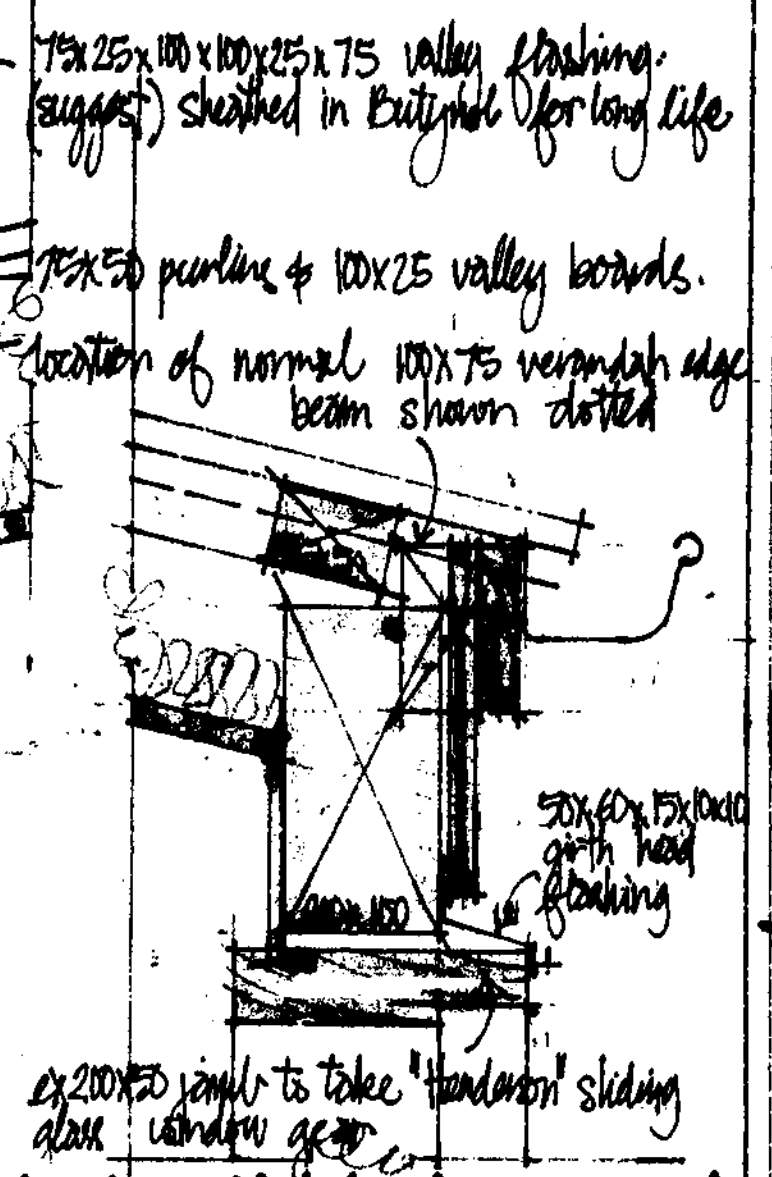 75x25x100x100x25x75 valley flashing.
(suggest) sheathed in Butynol for long life
75x50 purlins & 100x25 valley boards.
location of normal 100x75 verandah edge
beam shown dotted
50x60x15x10x10
girth head
flashing
ex 200x50 jamb to take "Henderson" sliding
glass window gear